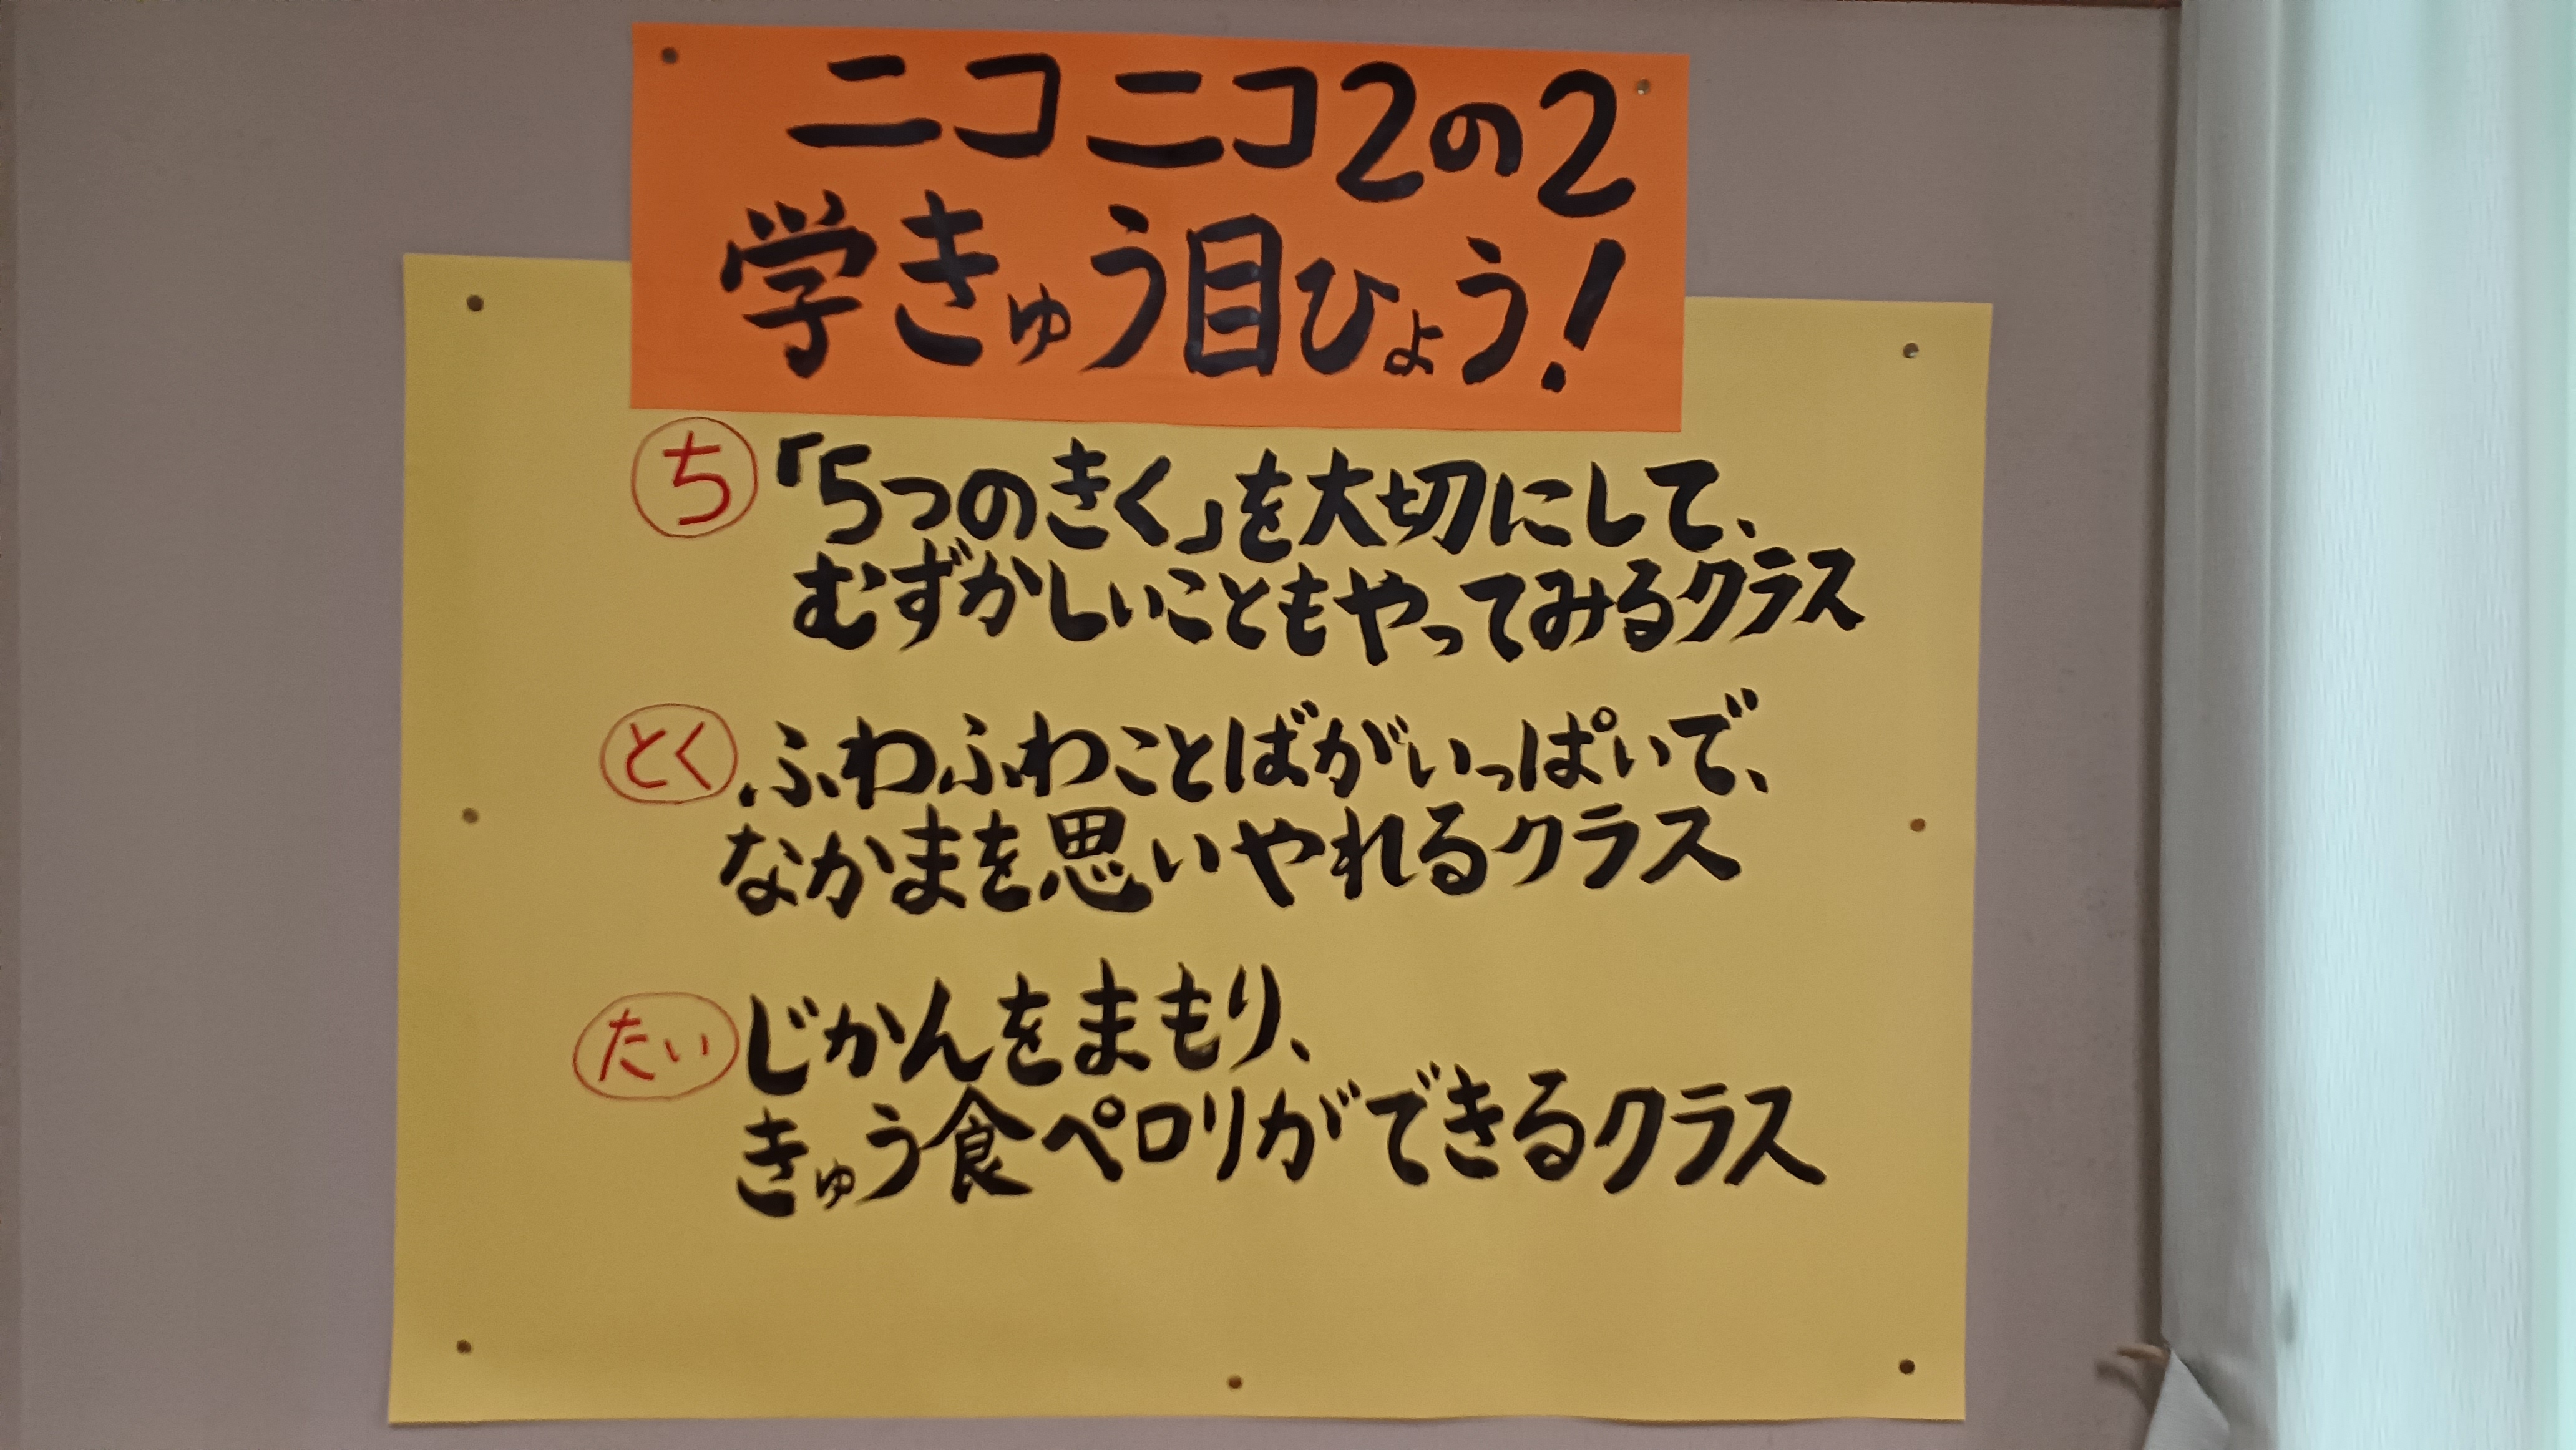 ニコニコ2の2
学きゅう目ひょう!
ち 「5つのきく」を大切にして、
むずかしいこともやってみるクラス
とく ふわふわことばがいっぱいで、
なかまを思いやれるクラス
たい じかんをまもり、
きゅう食ペロリができるクラス